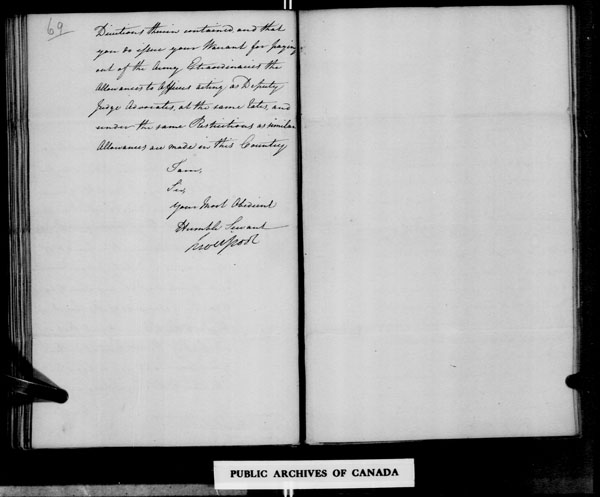 69
Directions therein contained, and that
you do issue your Warrant for paying
out of the Army Extraordinaries the
Allowances to Officers acting as Deputy
Judge Advocates, at the same Rates, and
under the same Restrictions as similar
Allowances are made in this Country
I am,
Sir,
Your Most Obedient
Humble Servant
Liverpool
PUBLIC ARCHIVES OF CANADA